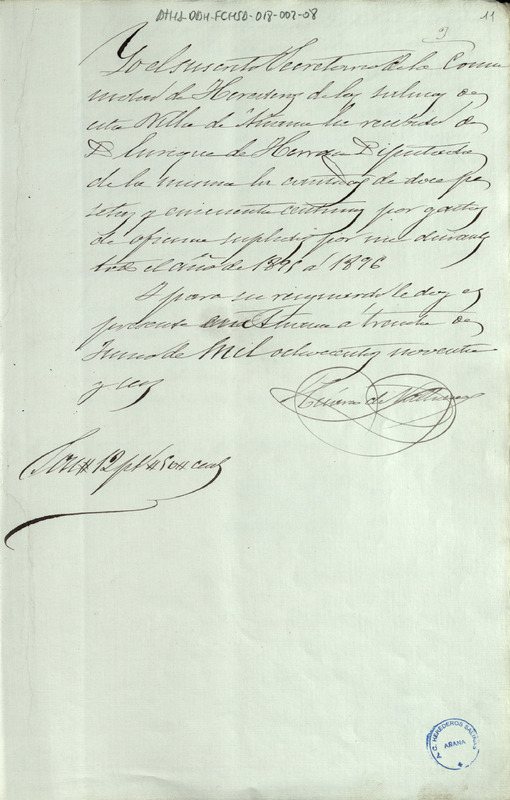 ATHA-DDH-FCHSA-018-002-08
11
9
Yo el susento Secretario de la Comu
nidad de Herederos de las salinas de
esta Villa de Añana he recibido de
D Enrique de Herrán Diputado
de la misma la cantidad de doce pe
setas y cincuenta centimos por gastos
de oficina suplidos por mi durante
todo el año de 1895 á 1896
Y para su resguardo le doy el
presente en Añana a treinta de
Junio de Mil ochocientos noventa
y seis
de
Son 12 pts 50 cent
C. HEREDEROS SALINAS
AÑANA